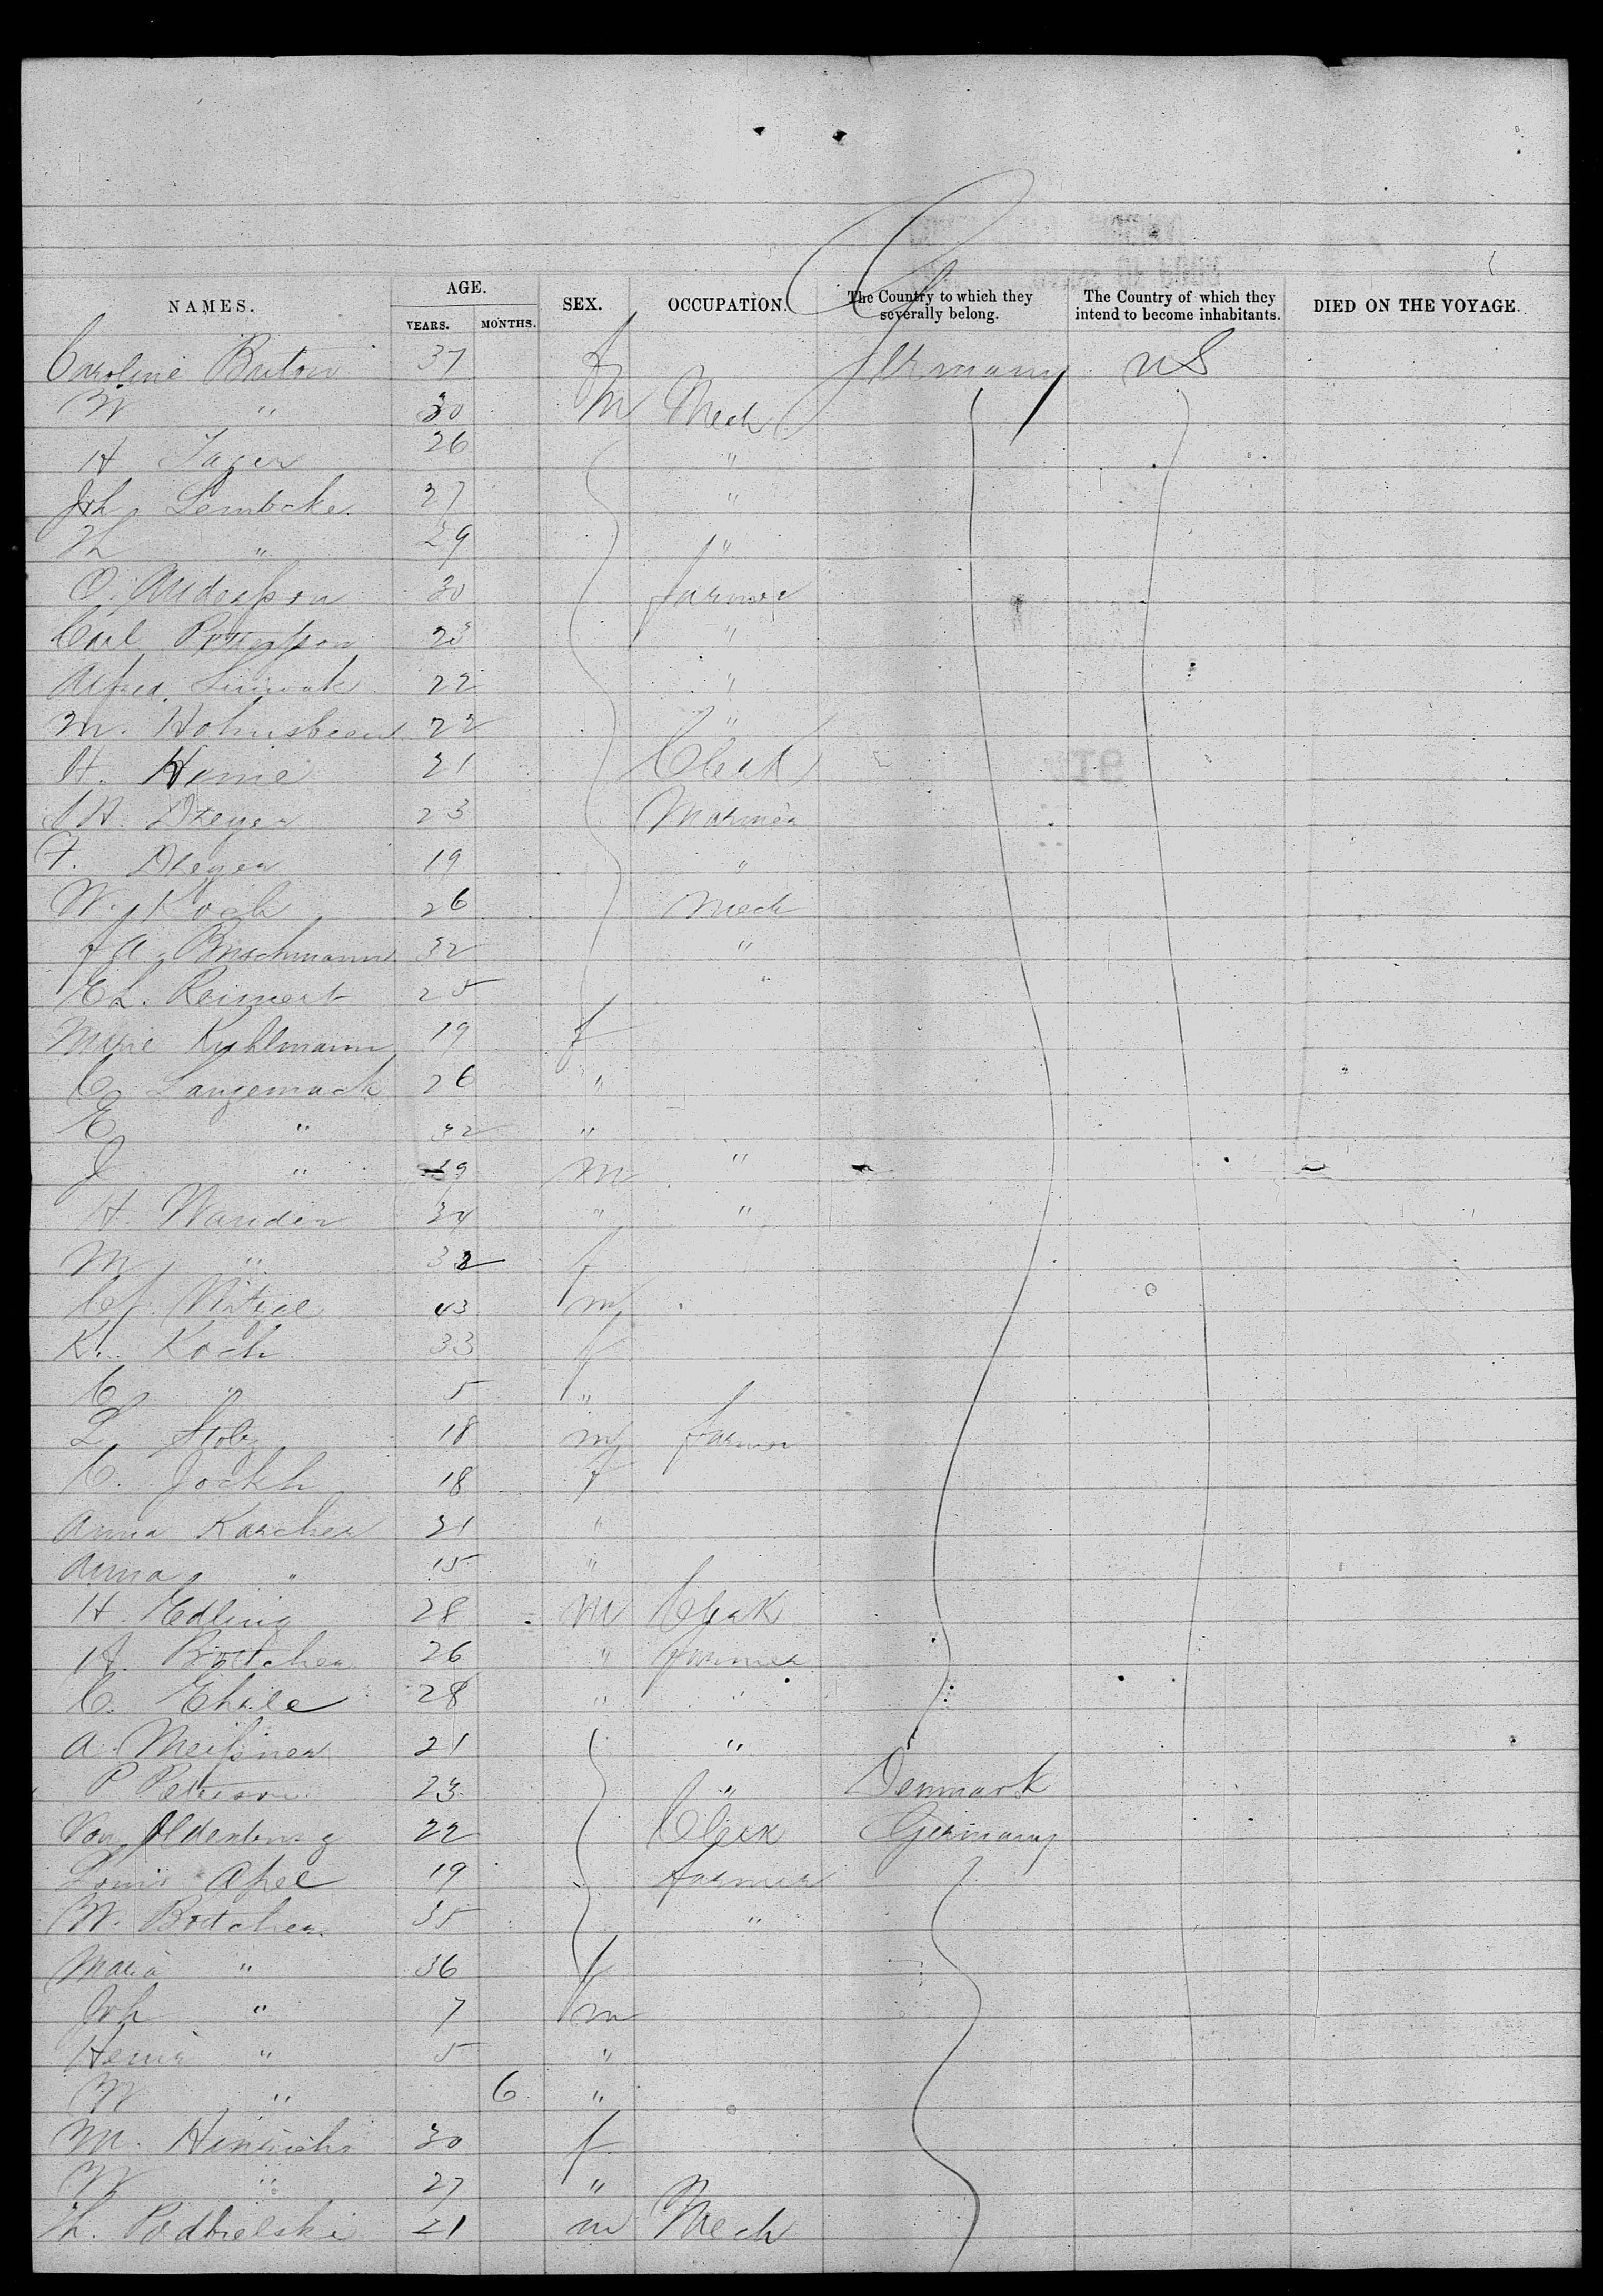 NAMES. AGE. SEX. OCCUPATION. The Country to which they severally belong. The Country of which they intend to become inhabitants. DIED ON THE VOYAGE.
YEARS. MONTHS.
Caroline 37 f Germany US
W " 30 m Mech
H Jager 26 "
Joh Lembcke 27 "
Th " 29 "
O. Andersson 30 farmer
Carl Pettersson 23 "
Alfred 22 "
M. 22 "
H. Heine 21 Clerk
Dreyer 23
F. Dreyer 19 "
W. Koch 26 Mech
Buschmann 32 "
Reimert 25 "
Marie Kuhlmann 19 f
C Langemack 26 "
E " 32 "
J " 29 m "
H. Wander 34 " "
M " 32 f
43 m
K. Koch 33 f
C " 5 "
L Stolz 18 m farmer
C. 18 f
Anna Karcher 21 "
Anna " 15 "
H. Edling 28 m Clerk
H. Bottcher 26 " farmer
C. 28 " "
A. Meissner 21 "
P Peterson 23 " Denmark
Von Oldenburg 22 Clerk Germany
Louis Apel 19 farmer
W. Bottcher 35 "
Maria " 36 f
Joh " 7 m
" 5 "
W " 6 "
M. Hinrichs 30 f
W " 27 "
Th. Podbielski 21 m Mech